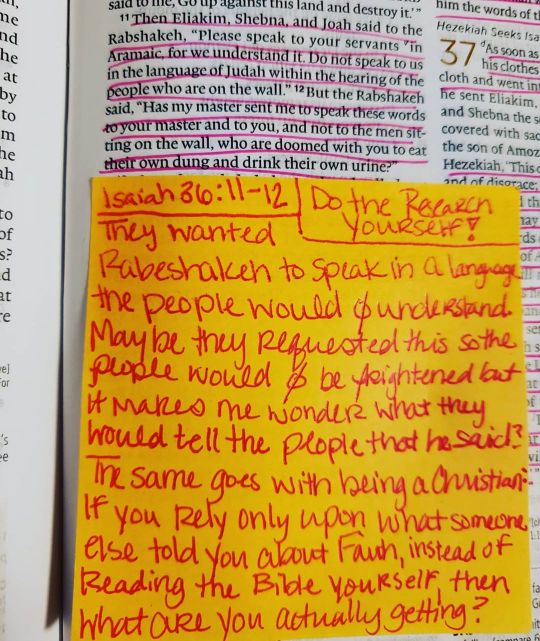 said to me, Go up against this land and destroy it.'"
11 Then Eliakim, Shebna, and Joah said to the
Rabshakeh, "Please speak to your servants in
Aramaic, for we understand it. Do not speak to us
in the language of Judah within the hearing of the
people who are on the wall." 12 But the Rabshakeh
said, "Has my master sent me to speak these words
to your master and to you, and not to the men sit-
ting on the wall, who are doomed with you to eat
their own dung and drink their own urine?"
Isaiah 36:11-12
Do the Research
yourself!
They wanted
Rabeshakeh to speak in a language
the people would ϕ understand.
Maybe they requested this so the
people would ϕ be frightened but
it makes me wonder what they
would tell the people that he said?
The same goes with being a Christian:
If you rely only upon what someone
else told you about Faith, instead of
Reading the Bible yourself, then
what are you actually getting?
him the words of
Hezekiah Seeks Isa
37 As soon as
his clothes
cloth and went in
he sent Eliakim,
and Shebna the s
covered with sac
the son of Amoz
Hezekiah, 'This
and of disgrace;